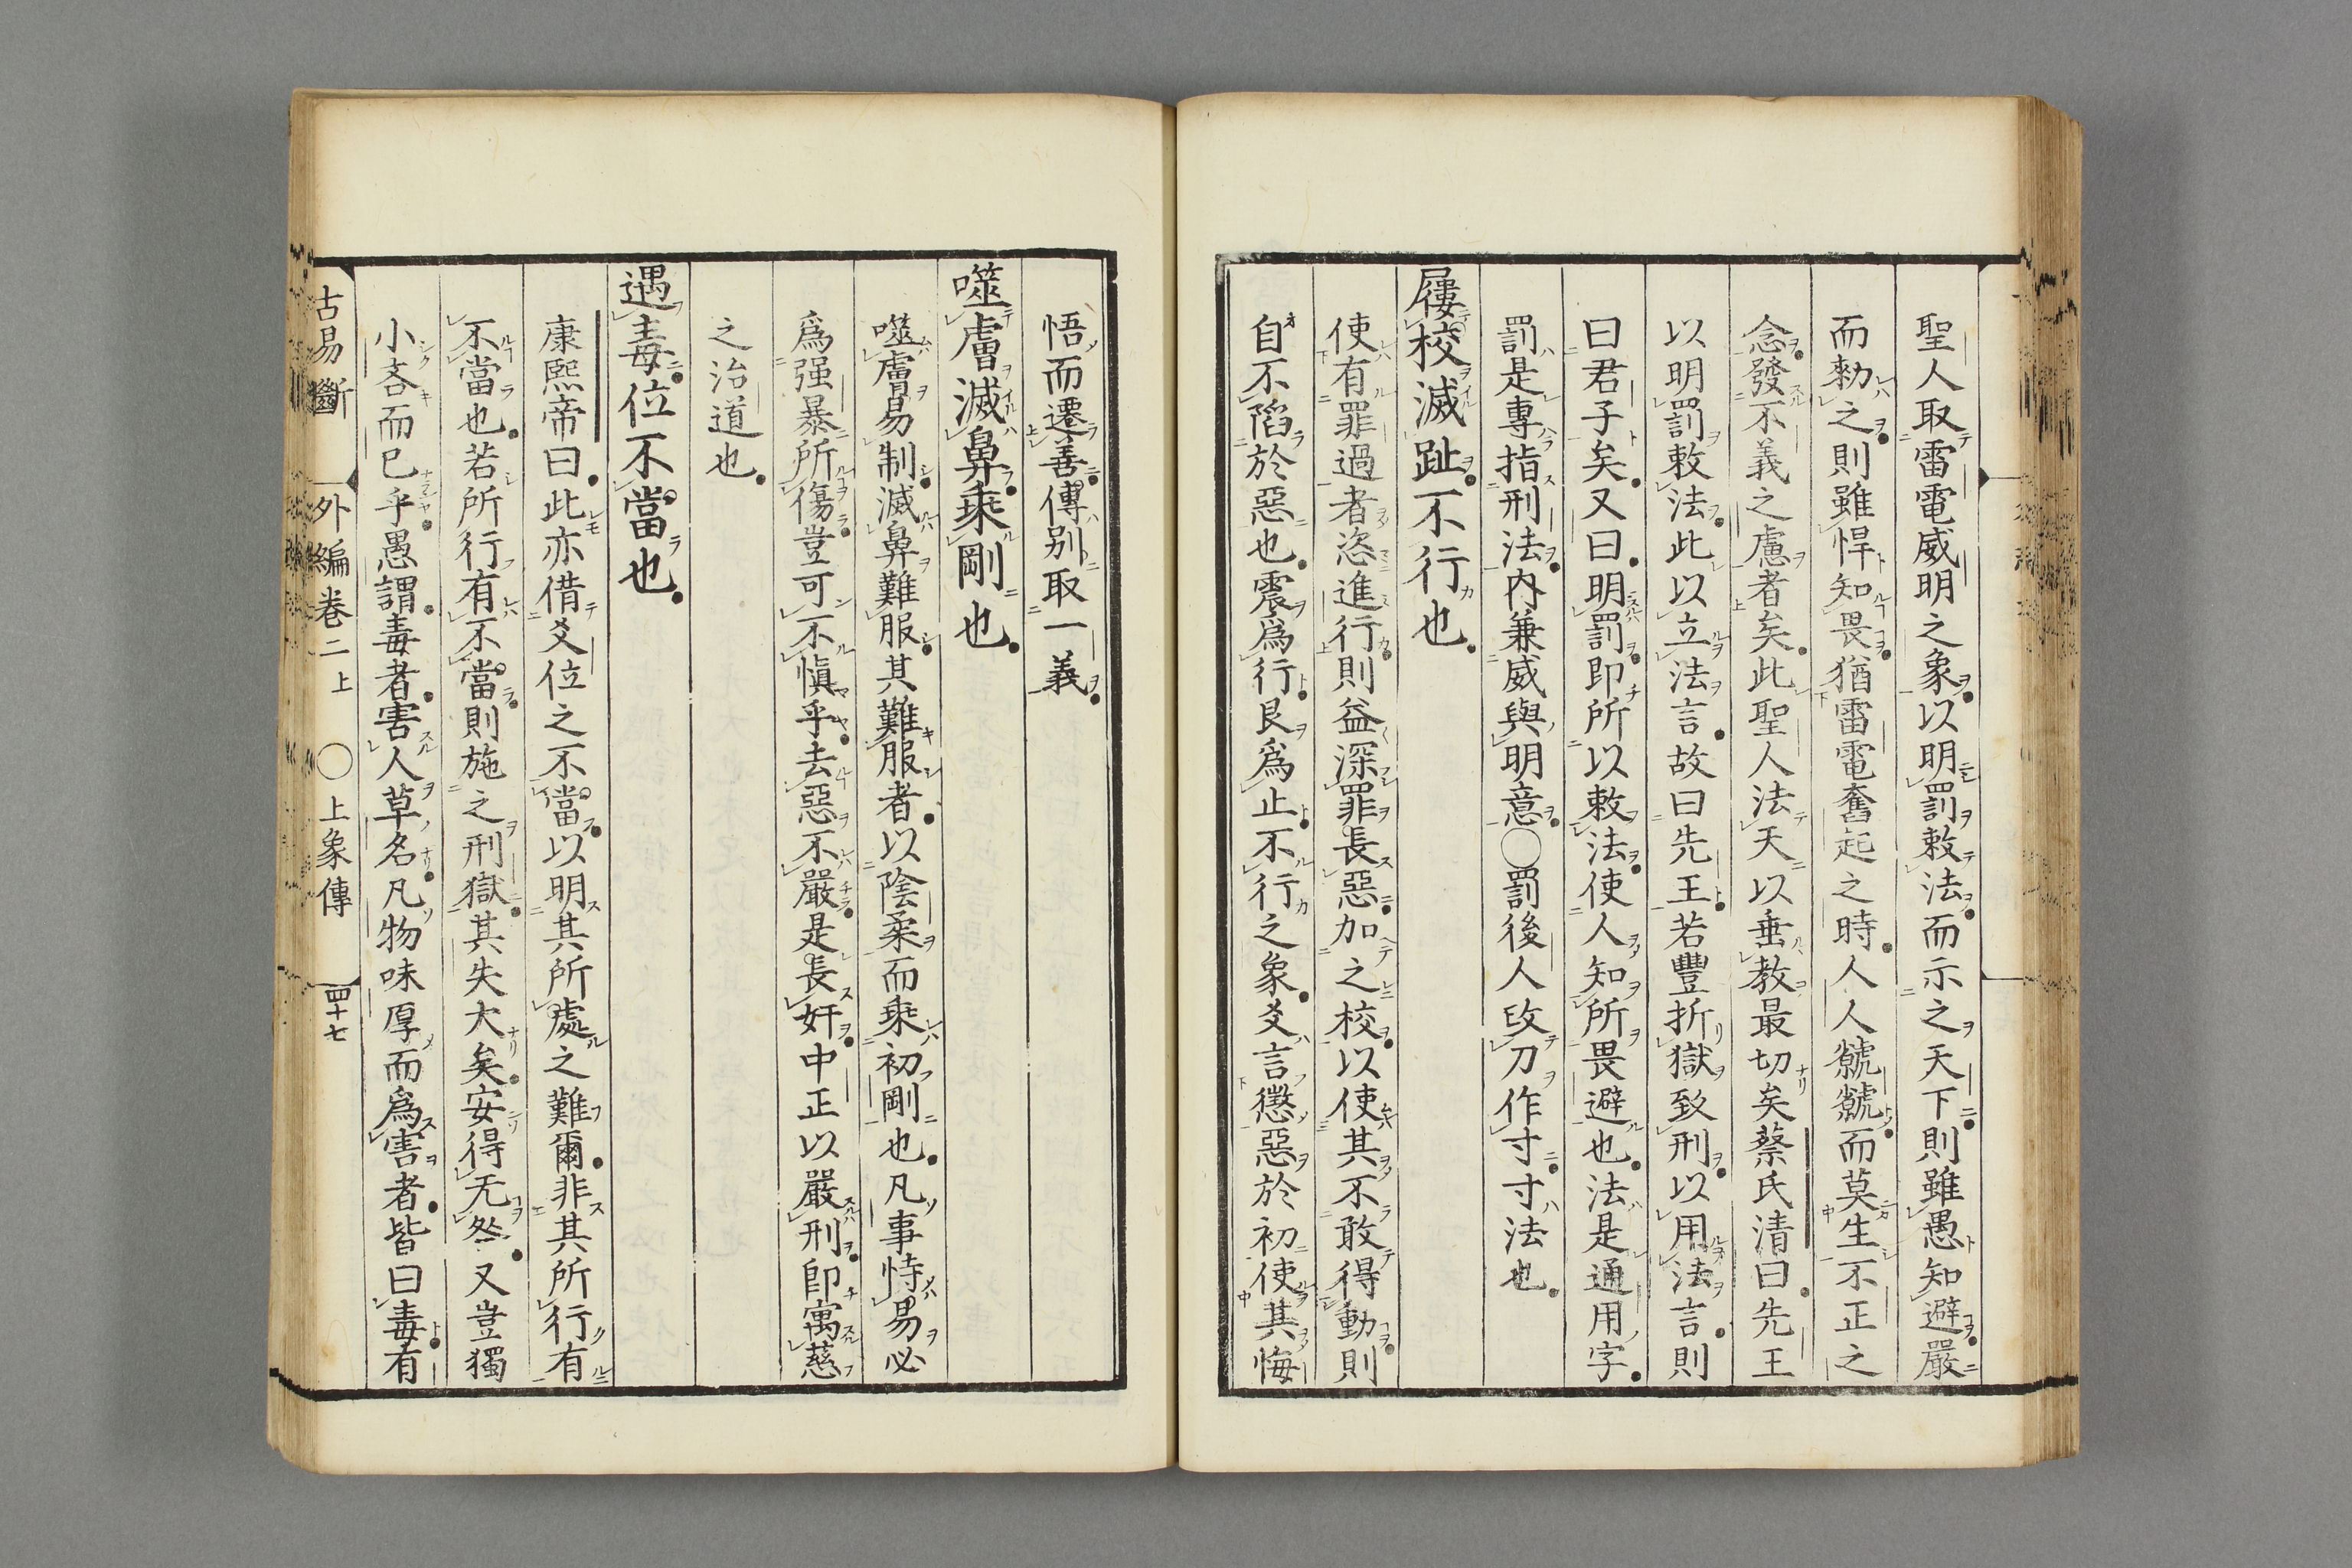 聖人取雷電威明之象以明罰敕法而示之天下則雖愚知避嚴
而勑之則雖悍知畏猶雷電奮起之時人人虩虩而莫生不正之
念發不義之慮者矣此聖人法天以垂教最切矣蔡氏清曰先王
以明罰敕法此以立法言故曰先王若豐折獄致刑以用法言則
曰君子矣又曰明罰即所以敕法使人知所畏避也法是通用字
罰是專指刑法內兼威與明意〇罰後人改刀作寸寸法也
屨校滅趾不行也
使有罪過者恣進行則益深罪長惡加之校以使其不敢得動則
自不陷於惡也震爲行艮爲止不行之象爻言懲惡於初使其悔
悟而遷善傳別取一義
噬膚滅鼻乘剛也
噬膚易制滅鼻難服其難服者以陰柔而乘初剛也凡事恃易必
爲强暴所傷豈可不愼乎去惡不嚴是長奸中正以嚴刑卽寓慈
之治道也
遇毒位不當也
康熙帝曰此亦借爻位之不當以明其所處之難爾非其所行有
不當也若所行有不當則施之刑獄其失大矣安得无咎又豈獨
小吝而已乎愚謂毒者害人草名凡物味厚而爲害者皆曰毒有
古易斷 外編卷二上 〇上象傳 四十七